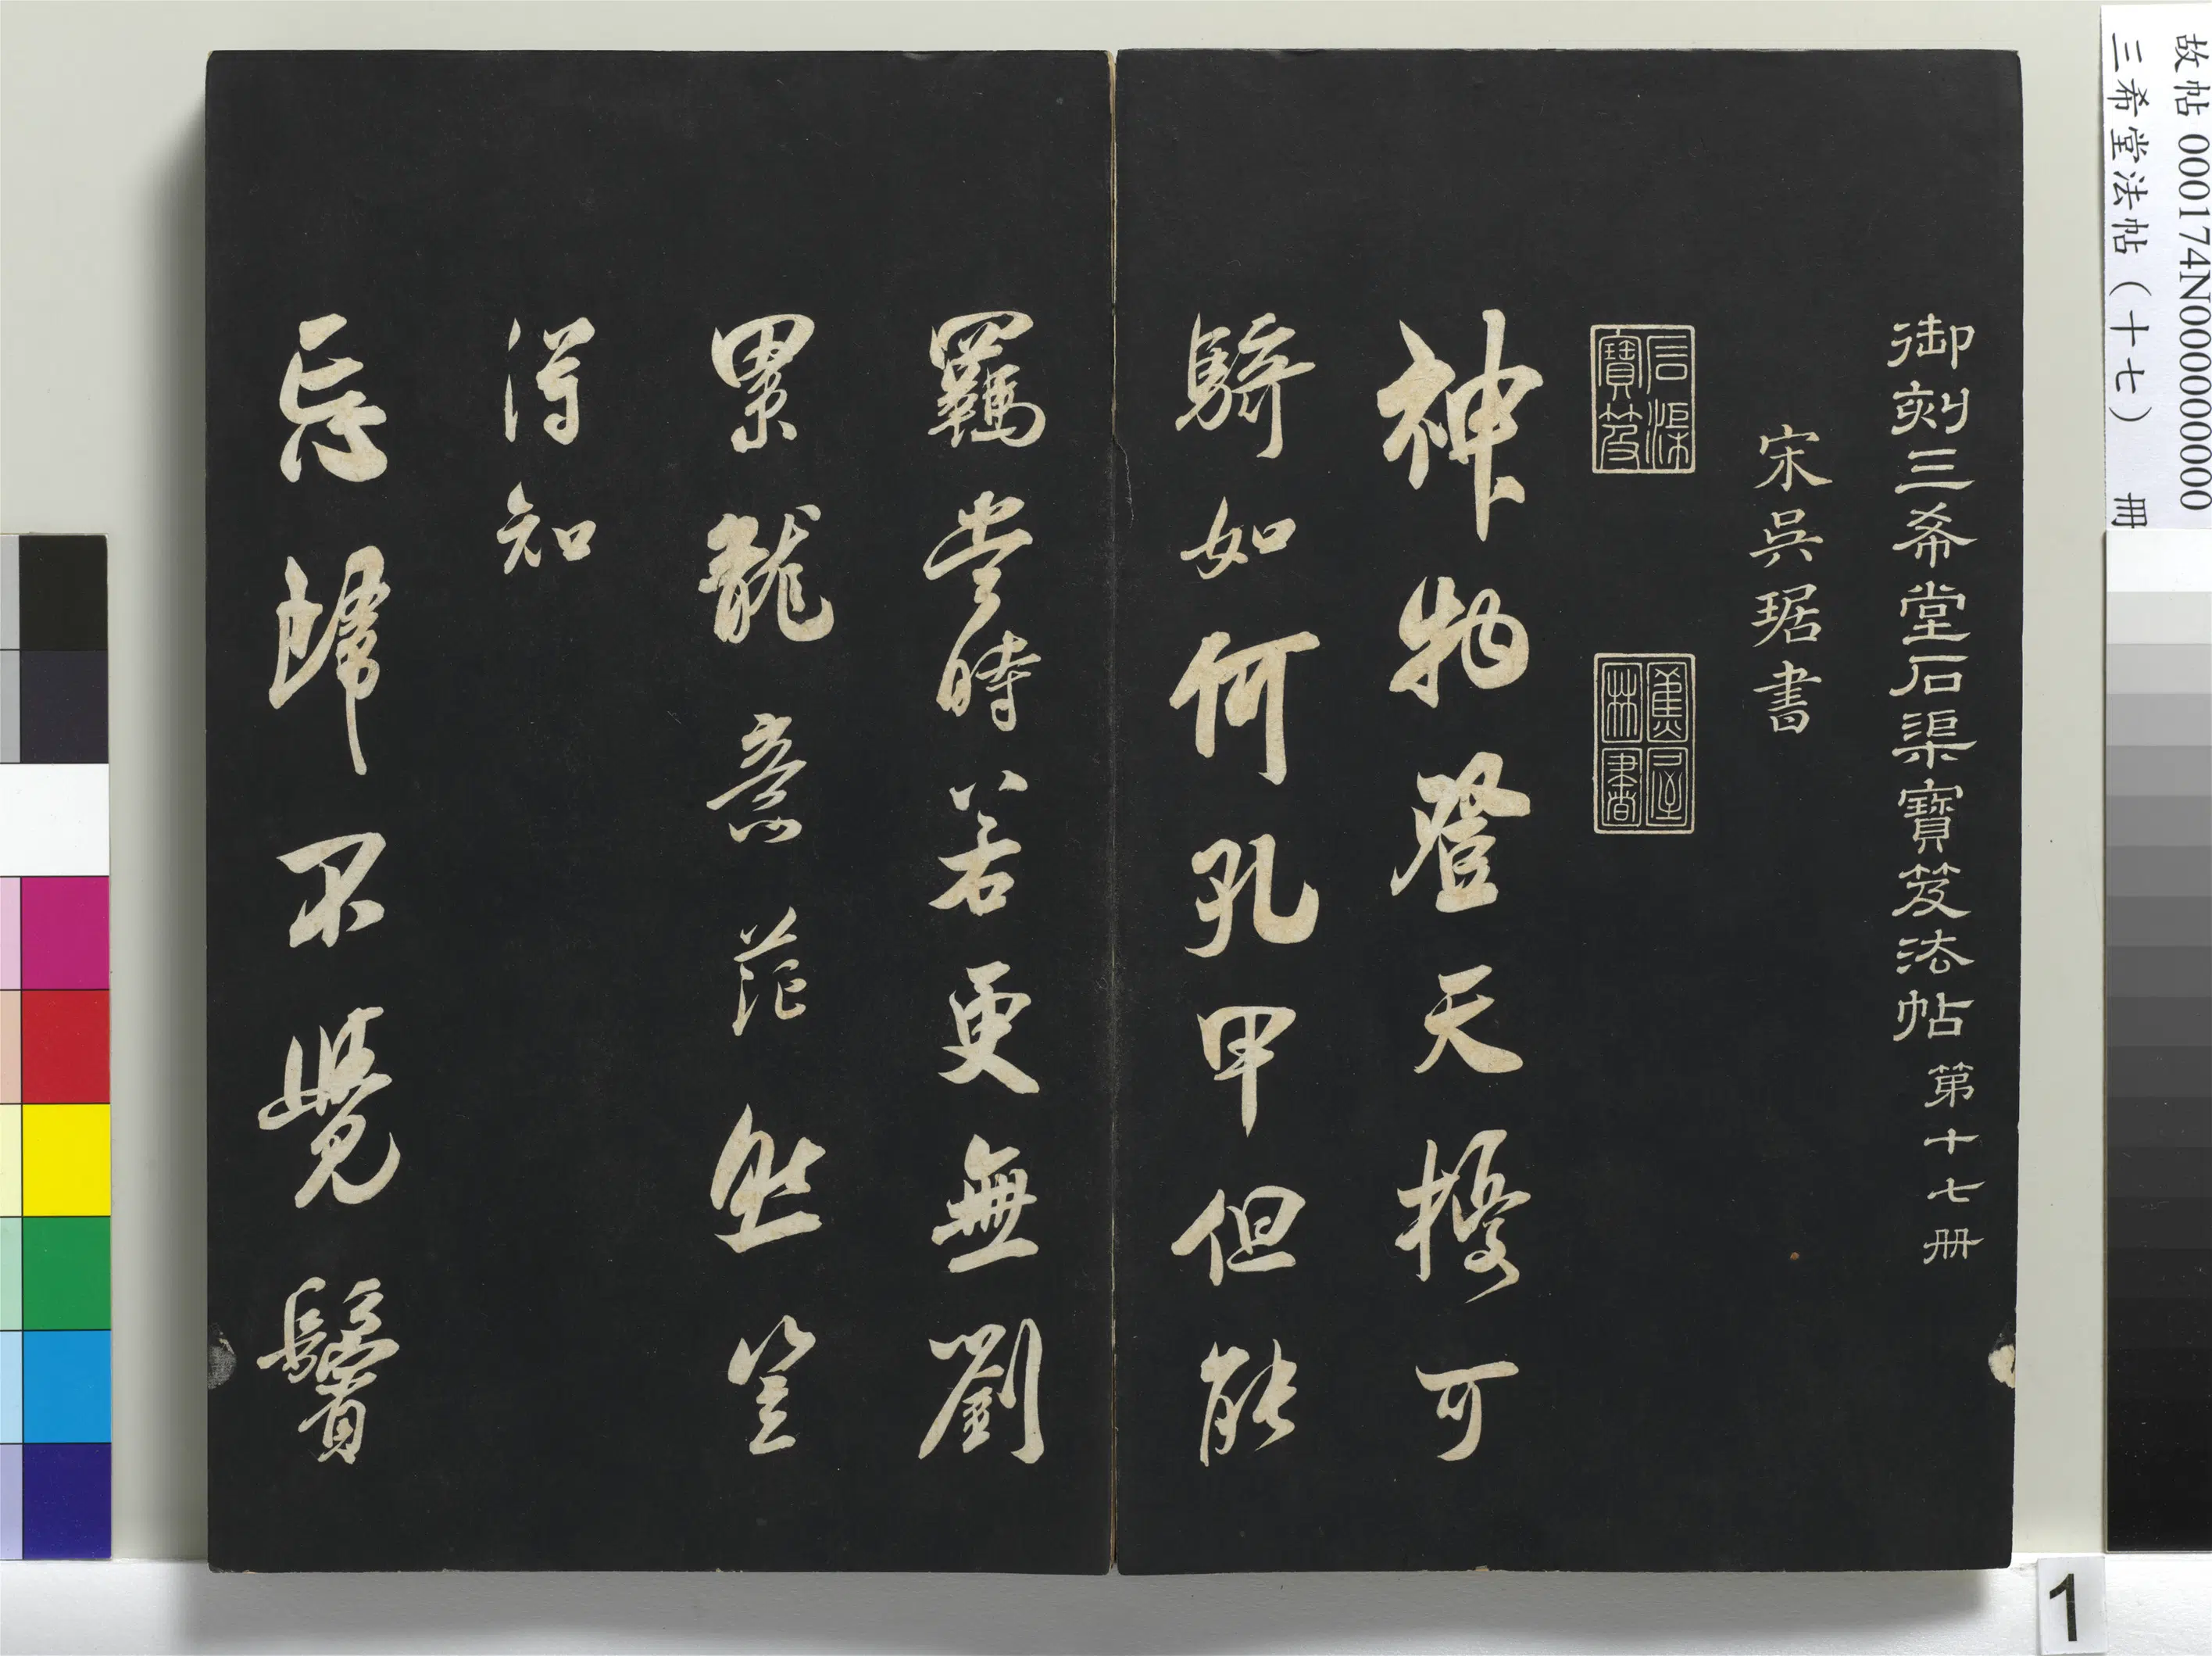 故帖 000174N000000000
三希堂法帖（十七） 冊
御刻三希堂石渠寶笈法帖 第十七册
宋吳琚書
石渠寶笈
蕉林書屋
神物登天擾可
騎如何孔甲但能
羈當時若更無劉
累龍意茫然豈
得知
忘歸不覺鬢
1